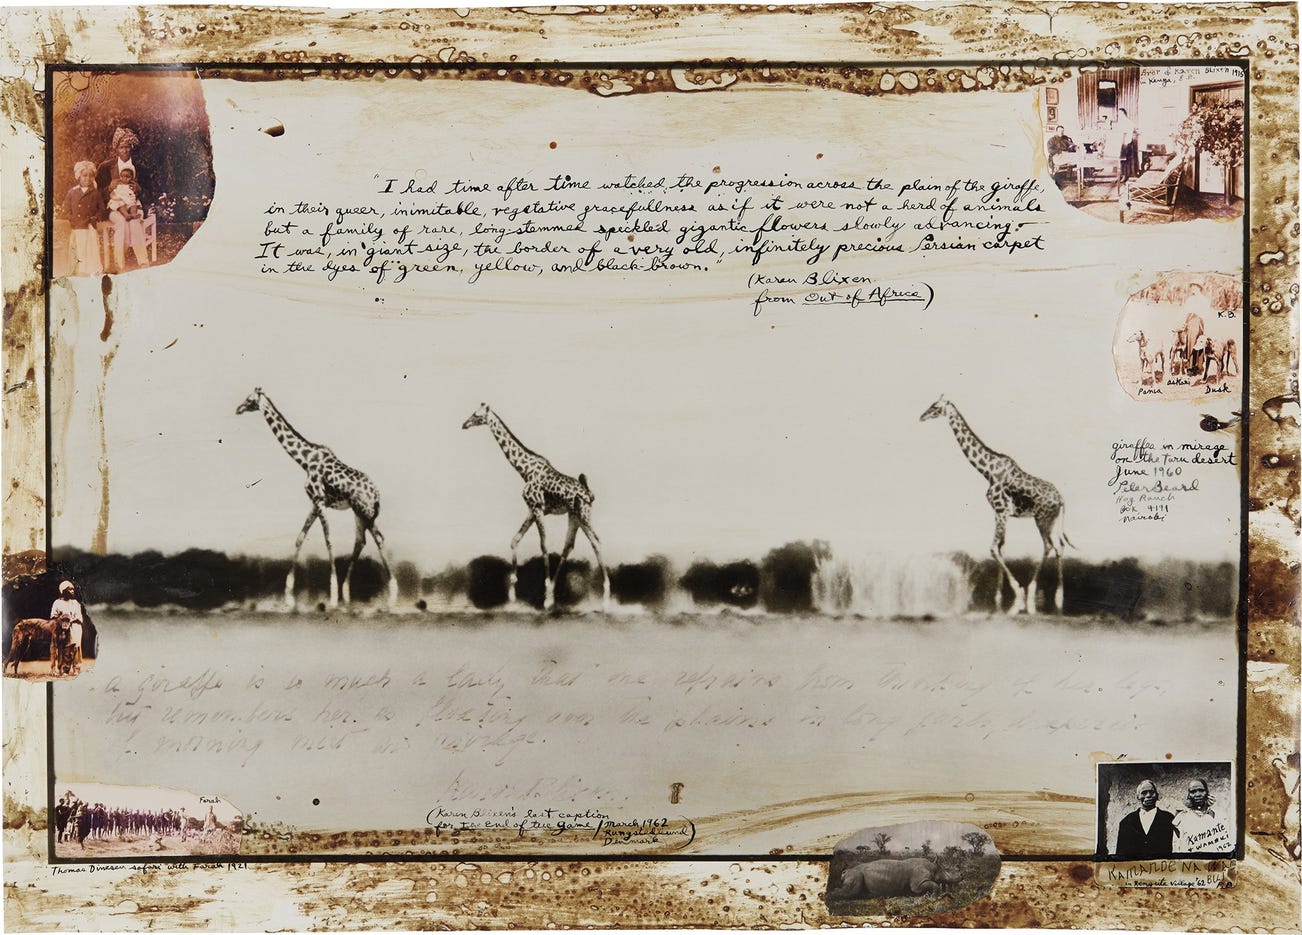 Bror & Karen Blixen 1915
in Kenya, E.A.
"I had time after time watched the progression across the plain of the giraffe,
in their queer, inimitable, vegetative gracefullness as if it were not a herd of animals
but a family of rare, long-stemmed speckled gigantic flowers slowly advancing.-
It was, in giant size, the border of a very old, infinitely precious Persian carpet
in the dyes of green, yellow, and black-brown."
(Karen Blixen
from Out of Africa)
K.B.
Pania
askari
Dusk
giraffes in mirage
on the Taru desert
June 1960
Peter Beard
Hog Ranch
Box 4191
Nairobi
a giraffe is so much a lady that one refrains from thinking of her legs,
but remembers her as floating over the plains in long garb, draperies
of morning mist or mirage.
Karen Blixen
(Karen Blixen's last caption
for The End of the Game / March 1962
Rungstedlund
Denmark)
Farah
Thomas Dinesen safari with Farah 1921
Kamante
+ Wambui
1962
KAMANDE NA
in Rongute Village '62